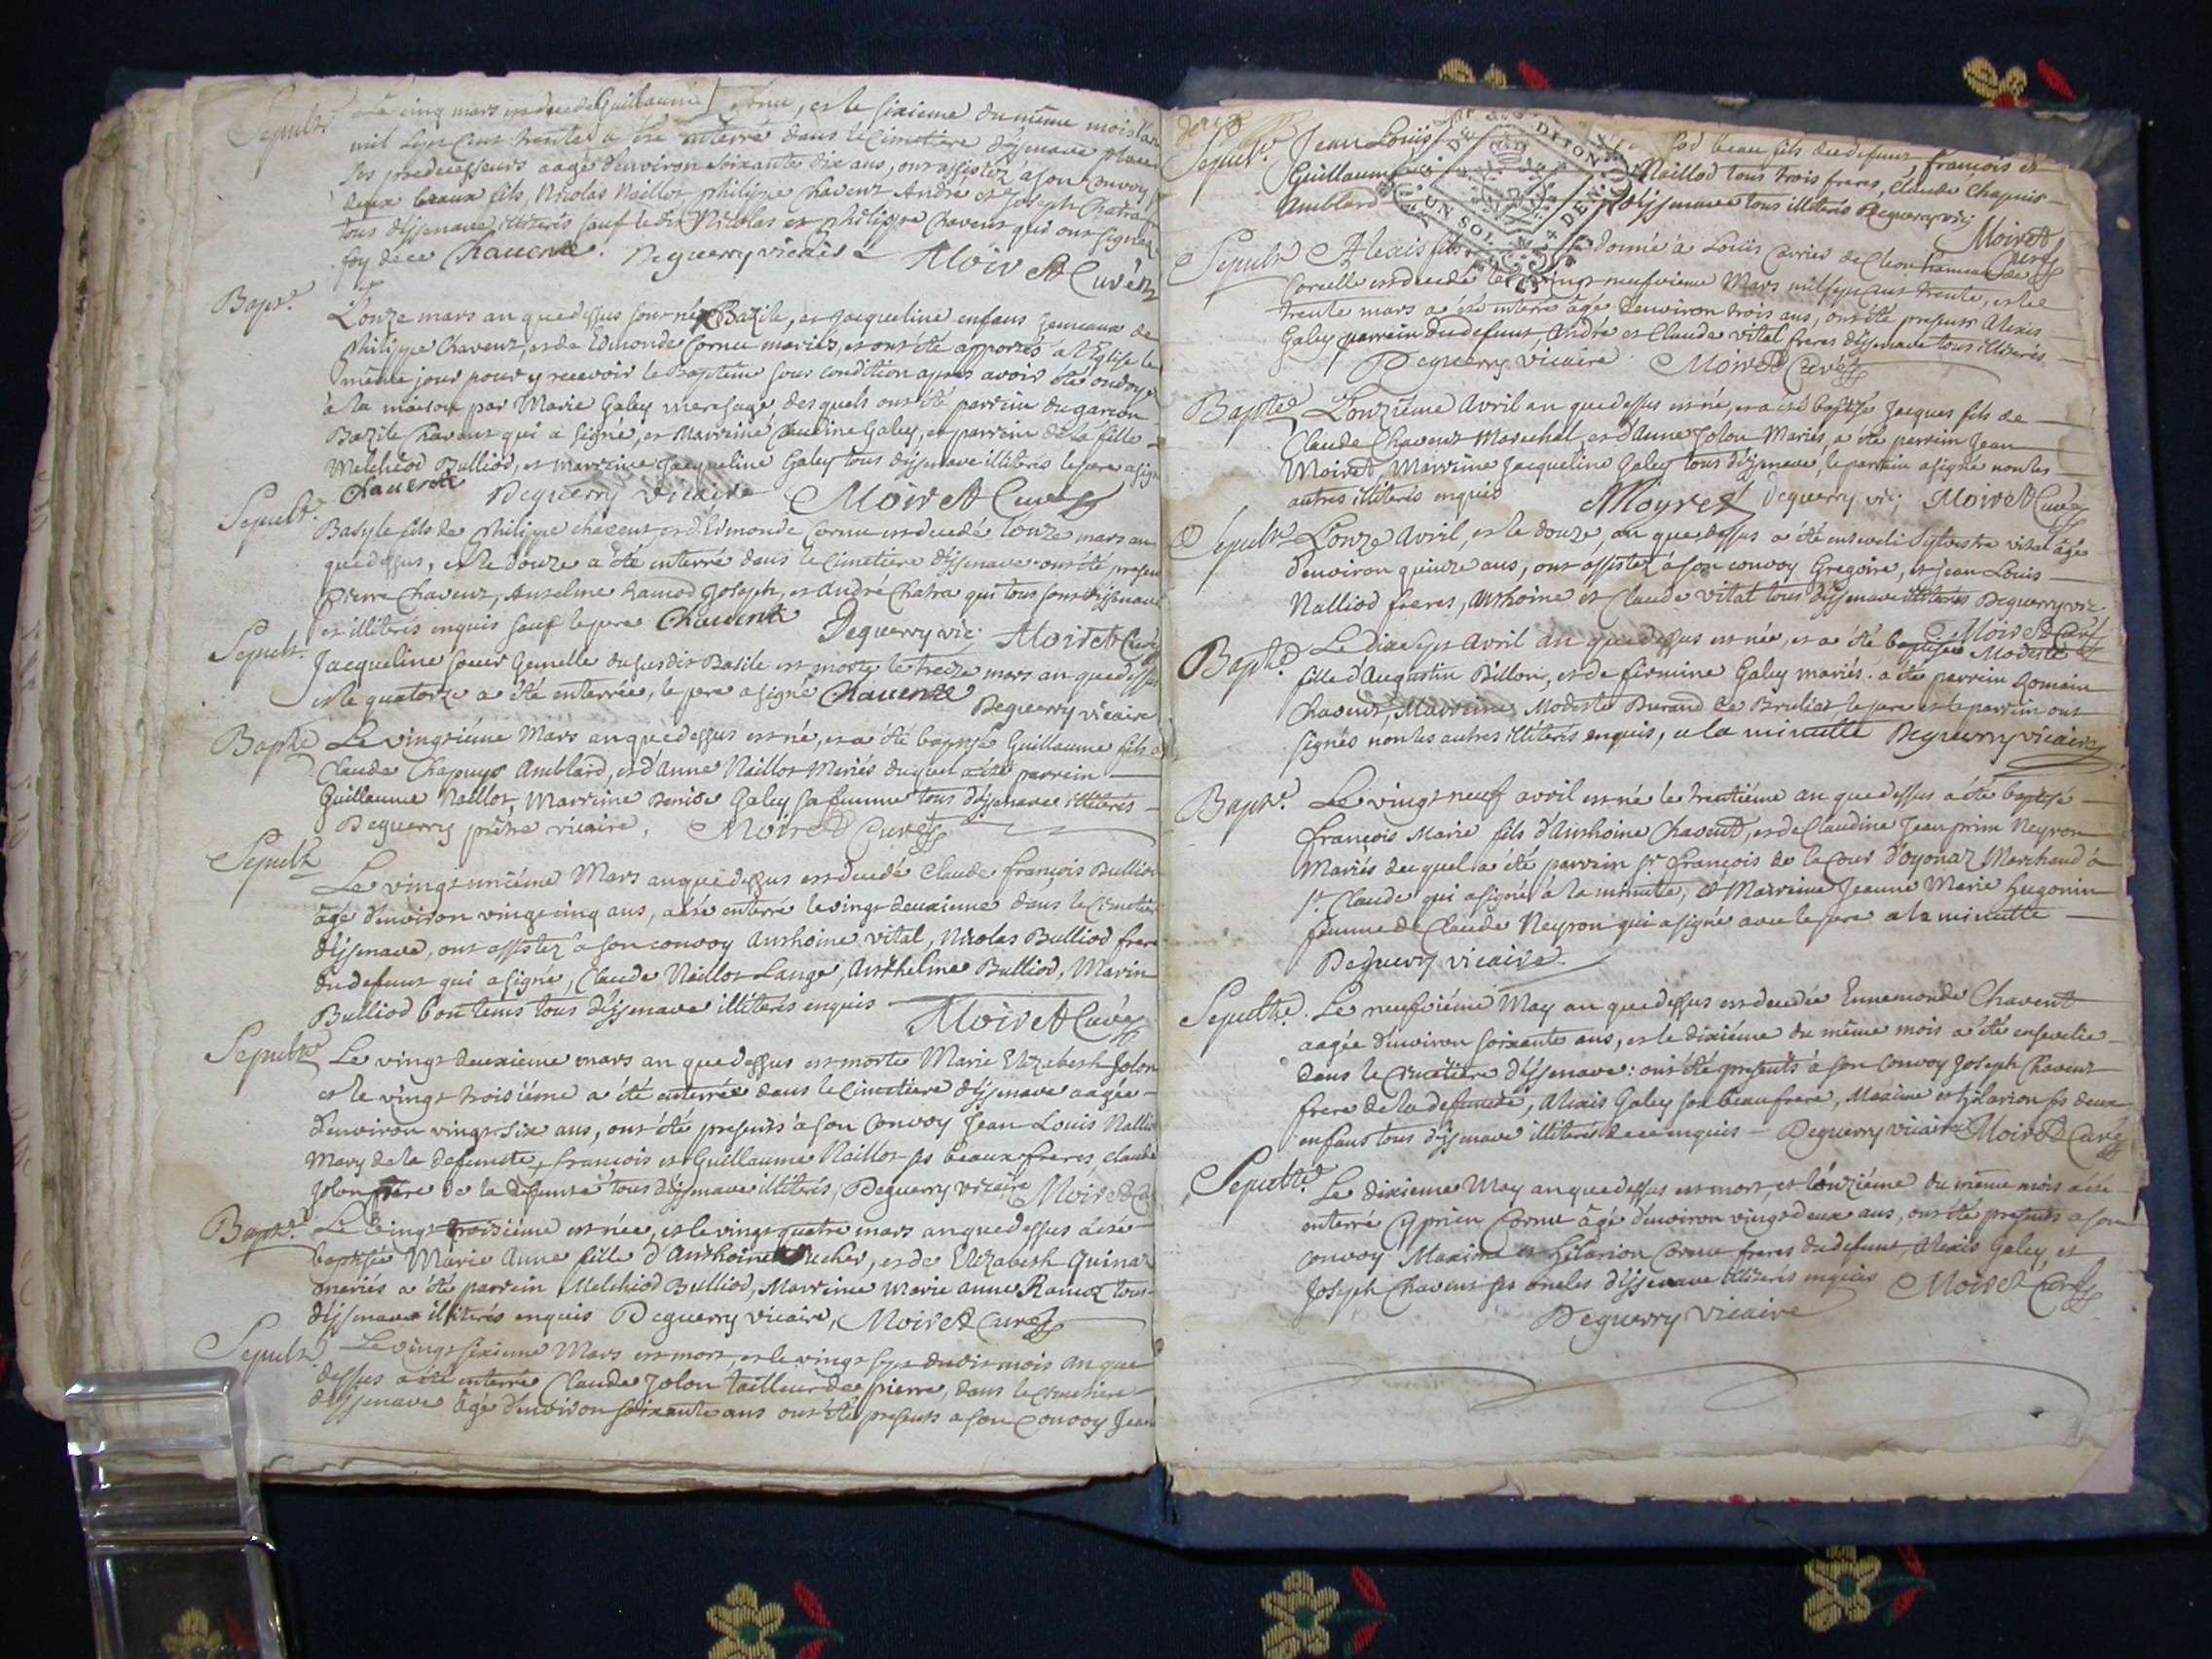 Sepultr Le cinq mars est decedé Guillaume Cornu, et le sixieme du même mois l'an
mil sept cent trente a été enterré dans le cimetiere d'ijsenave place
ses predecesseurs aagé d'environ soixante dix ans, ont assistez a son convoy
deux beaux fils, Nicolas Naillot philippe Chavent André et Joseph Chatra
tous d'ijsenave illiterés sauf ledit Nicolas et philippe Chavent qui ont signez
foy de ce Chavent. Deguerry vicaire Moiret Curé
Bapt.e L'onze mars an que dessus sont nés Bazile, et Jacqueline enfans jemeaux de
philippe Chavent, et de Edmonde Cornu mariés, et ont été apportés a l'Eglise le
même jour pour y recevoir le Baptême sous condition apres avoir été ondoyé
à la maison par Marie Galey mere sage, desquels ont été parrein du garcon
Bazile Chavent qui a signé, et Marreine Claudine Galey, et parrein de la fille
Melchiod Bulliod, et marreine Jacqueline Galey tous d'ijsenave illiterés le pere a signé
Chavent Deguerry vicaire Moiret Curé
Sepultr. Basyle fils de philippe chavent et d'Edmonde Cornu est decedé l'onze mars an
que dessus, et le douze a été enterré dans le Cimetiere d'ijsenave ont été presens
pierre Chavent, Anselme hamod Joseph, et André Chatra qui tous sont d'ijsenave
et illiterés enquis sauf le pere Chavent Deguerry vic: Moiret Curé
Sepult. Jacqueline soeur Gemelle du susdit Basile est morte le treize mars an que dessus
et le quatorze a été enterrée, le pere a signé Chavent
Deguerry vicaire
Baptê Le vingtiéme Mars an que dessus est né, et a été baptisé Guillaume fils de
Claude Chapuys Amblard, et d'Anne Naillot Mariés duquel a été parrein
Guillaume Naillot, Marreine Denise Galey sa femme tous d'ijsenave illiterés
Deguerry prêtre vicaire, Moiret Curé
Sepultr
Le vingt uniéme Mars an que dessus est decedé Claude françois Bulliod
âgé d'environ vingt cinq ans, a été enterré le vingt deuxieme dans le Cimetiere
d'ijsenave, ont assistez a son convoy Anthoine vital, Nicolas Bulliod frere
du defunt qui a signé, Claude Naillot Lange, Anthelme Bulliod, Marin
Bulliod bon tems tous d'ijsenave illiterés enquis
Moiret Curé
Sepultre Le vingt deuxieme mars an que dessus est morte Marie Elizabeth Jolon
et le vingt troisiéme a été enterrée dans le Cimetiere d'ijsenave aagée
d'environ vingt six ans, ont été presents à son Convoy Jean Louis Nalliod
Mary de la defuncte, francois et Guillaume Naillot ses beaux freres, claude
Jolon frere de la defunte tous d'ijsenave illiterés, Deguerry vicaire Moiret Curé
Bapt.e Le vingt troisiéme est née, et le vingt quatre mars an que dessus a été
baptisée Marie Anne fille d'Anthoine Bucher, et de Elizabeth Guinat
mariés a été parrein Melchiod Bulliod, Marreine Marie anne Ramoz tous
d'ijsenave illiterés enquis Deguerry vicaire, Moiret Curé
Sepultr Le vingt sixieme Mars est mort, et le vingt sept dudit mois an que
dessus a été enterré Claude Jolon tailleur de pierre, dans le cimetiere
d'ijsenave âgé d'environ soixante ans ont été presents a son Convoy Jean
Sepult.e Jean Louis beau fils du defunt francois et
Guillaume Naillod tous trois freres, Claude Chapuis
Amblard d'ijsenave tous illiterés Deguerry vic:
Moiret Curé
Sepultr Alexis fils donné à Louis Carrier de
Corcelle est decedé le vingt neufvieme Mars mil sept cent trente, et le
trente mars a été enterré âgé d'environ trois ans, ont été presents Alexis
Galey parrein du defunt, André et Claude vital freres d'ijsenave tous illiterés
Deguerry vicaire Moiret Curé
Baptê L'onziéme Avril an que dessus est né, et a été baptisé Jacques fils de
Claude Chavent Marechal, et d'Anne Jolon Mariés, a été parrein Jean
Moiret, Marreine Jacqueline Galey tous d'ijsenave, le parrein a signé non les
autres illiterés enquis Moyret Deguerry vic: Moiret Curé
Sepultr L'onze Avril, et le douze, an que dessus a été enseveli Sylvestre vital âgé
d'environ quinze ans, ont assistez à son convoy Gregoire, et Jean Louis
Nalliod freres, Anthoine et Claude vital tous d'ijsenave illiterés Deguerry vic
Moiret Curé
Baptê. Le dix sept Avril an que dessus est née, et a été baptisée Modeste
fille d'Augustin Billon, et de firmine Galey mariés. a été parrein Romain
Chavent, Marreine Modeste Durand de Bruliat, le pere et le parrein ont
signés non les autres illiterés enquis, a la minutte Deguerry vicaire
Bapt.e Le vingt neuf avril est né le trentiéme an que dessus a été baptisé
François Marie fils d'Anthoine Chavent, et de Claudine Jeanprin Neyron
Mariés duquel a été parrein sr. François de la Cour d'oyonaz Marchand à
st. Claude qui a signé a la minutte, et Marreine Jeanne Marie Hugonin
femme de Claude Neyron qui a signé avec le pere a la minutte
Deguerry vicaire
Sepulthe. Le neufviéme May an que dessus est decedée Ennemonde Chavent
aagée d'environ soixante ans, et le dixiéme du même mois a été ensevelie
dans le Cimetiere d'ijsenave: ont été presents à son Convoy Joseph Chavent
frere de la defuncte, Alexis Galey son beau frere, Maxime et hilarion ses deux
enfans tous d'ijsenave illiterés de ce enquis Deguerry vicaire Moiret Curé
Sepulthe. Le dixieme May an que dessus est mort, et l'onziéme du même mois a été
enterré Cyprien Cornu âgé d'environ vingt deux ans, ont été presents a son
convoy Maxime et hilarion Cornu freres du defunt, Alexis Galey, et
Joseph Chavent ses oncles d'ijsenave illiterés enquies Moiret Curé
Deguerry vicaire